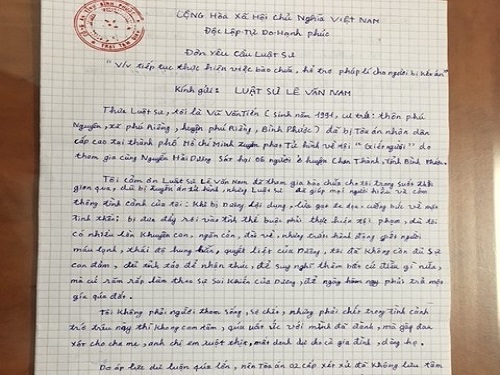 CỘNG HÒA XÃ HỘI CHỦ NGHĨA VIỆT NAM
Độc Lập-Tự Do-Hạnh phúc
Đơn Yêu Cầu Luật Sư
"V/v tiếp tục thực hiện việc bào chữa, hỗ trợ pháp lí cho người bị kết án"
Kính gửi: LUẬT SƯ LÊ VĂN NAM
Thưa Luật sư, tôi là Vũ Văn Tiến (sinh năm 1991, cư trú: thôn phú
Nguyên, xã phú Riềng, huyện phú Riềng, Bình Phước) đã bị Tòa án nhân dân
cấp cao tại thành phố Hồ Chí Minh tuyên phạt Tử hình về tội "Giết người" do
tham gia cùng Nguyễn Hải Dương sát hại 06 người ở huyện Chơn Thành, tỉnh Bình Phước.
Tôi cảm ơn Luật sư Lê Văn Nam đã tham gia bào chữa cho tôi trong suốt thời
gian qua, dù bị tuyên án tử hình, nhưng Luật sư đã giúp mọi người hiểu và cảm
thông tình cảnh của tôi: Khi bị Dương lợi dụng, lừa gạt đe dọa, cưỡng bức về mặt
tinh thần bị đưa đẩy rơi vào tình thế buộc phải thực hiện tội phạm, dù tôi
có nhiều lần khuyên can, ngăn cản, dù về, những trước hành động giết người
máu lạnh, thái độ hung hãn, quyết liệt của Dương, tôi đã không còn đủ sự
can đảm, đủ tỉnh táo để nhận thức, để suy nghĩ thêm bất cứ điều gì nữa,
mà cứ răm rắp làm theo sự sai khiến của Dương, để ngày hôm nay phải trả một
giá quá đắt.
Tôi không phải người tham sống, sợ chết, nhưng phải chết trong tình cảnh
trớ trêu này thì không cam tâm, quá uất ức với mình đã đành, mà gây đau
xót cho cha mẹ, anh chị em ruột thịt, mất danh dự cho cả gia đình, dòng họ.
Do áp lực dư luận quá lớn, nên Tòa án 02 cấp xét xử đã không lưu tâm